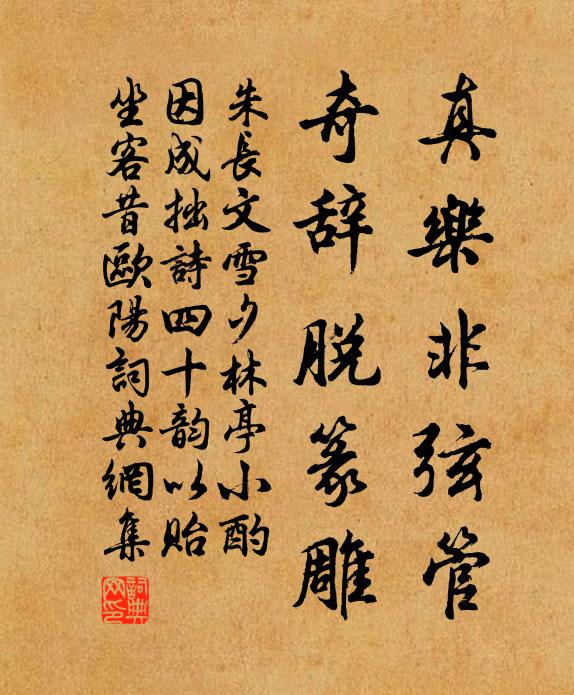 真樂非弦管
奇辞脱篆雕
朱長文雪夕林亭小酌
因成拙詩四十韵以貽
坐客昔歐陽詞典網集
詞典
网印